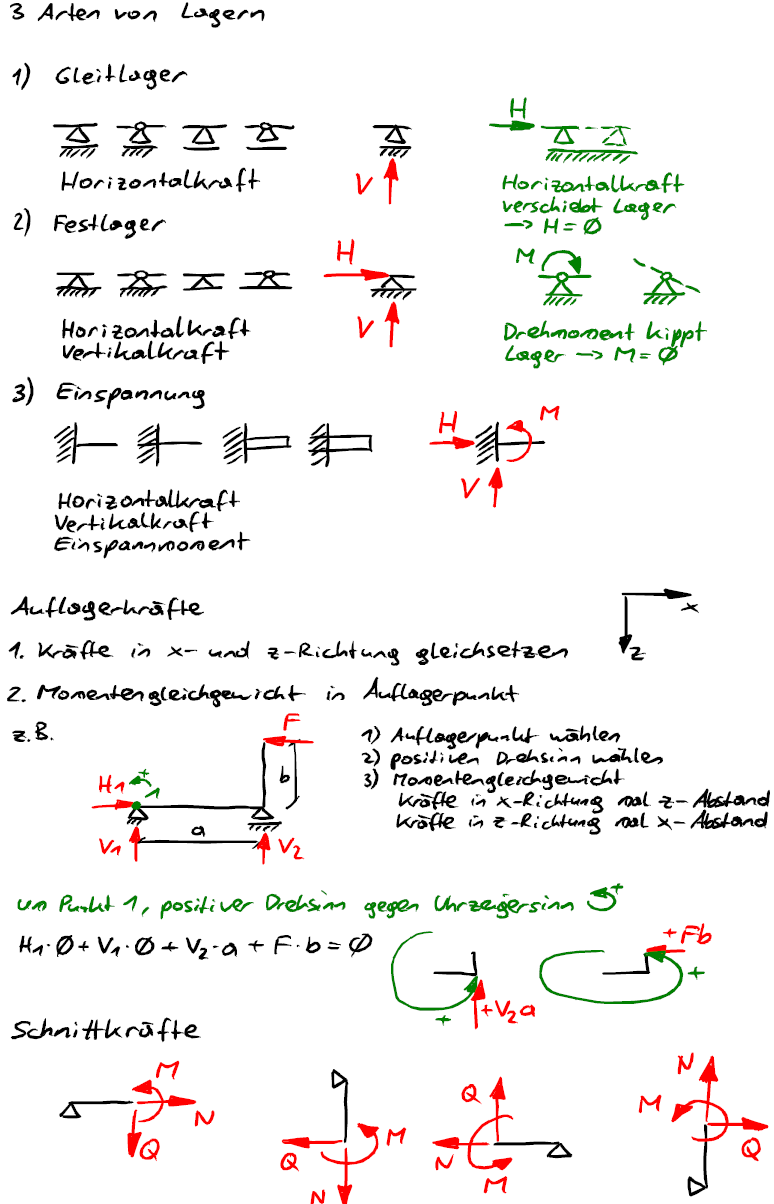 3 Arten von Lagern
1) Gleitlager
H
Horizontalkraft
V
Horizontalkraft
verschiebt Lager
→ H = Ø
2) Festlager
H
M
V
Horizontalkraft
Vertikalkraft
Drehmoment kippt
Lager → M = Ø
3) Einspannung
H
M
V
Horizontalkraft
Vertikalkraft
Einspannmoment
Auflagerkräfte
x
z
1. Kräfte in x- und z-Richtung gleichsetzen
2. Momentengleichgewicht in Auflagerpunkt
z.B.
F
b
H1
+
1
a
V1
V2
1) Auflagerpunkt wählen
2) positiven Drehsinn wählen
3) Momentengleichgewicht
Kräfte in x-Richtung mal z-Abstand
Kräfte in z-Richtung mal x-Abstand
um Punkt 1, positiver Drehsinn gegen Uhrzeigersinn +
H1·Ø + V1·Ø + V2·a + F·b = Ø
+
+V2a
+Fb
+
Schnittkräfte
M
N
Q
Q
M
N
Q
N
M
N
M
Q